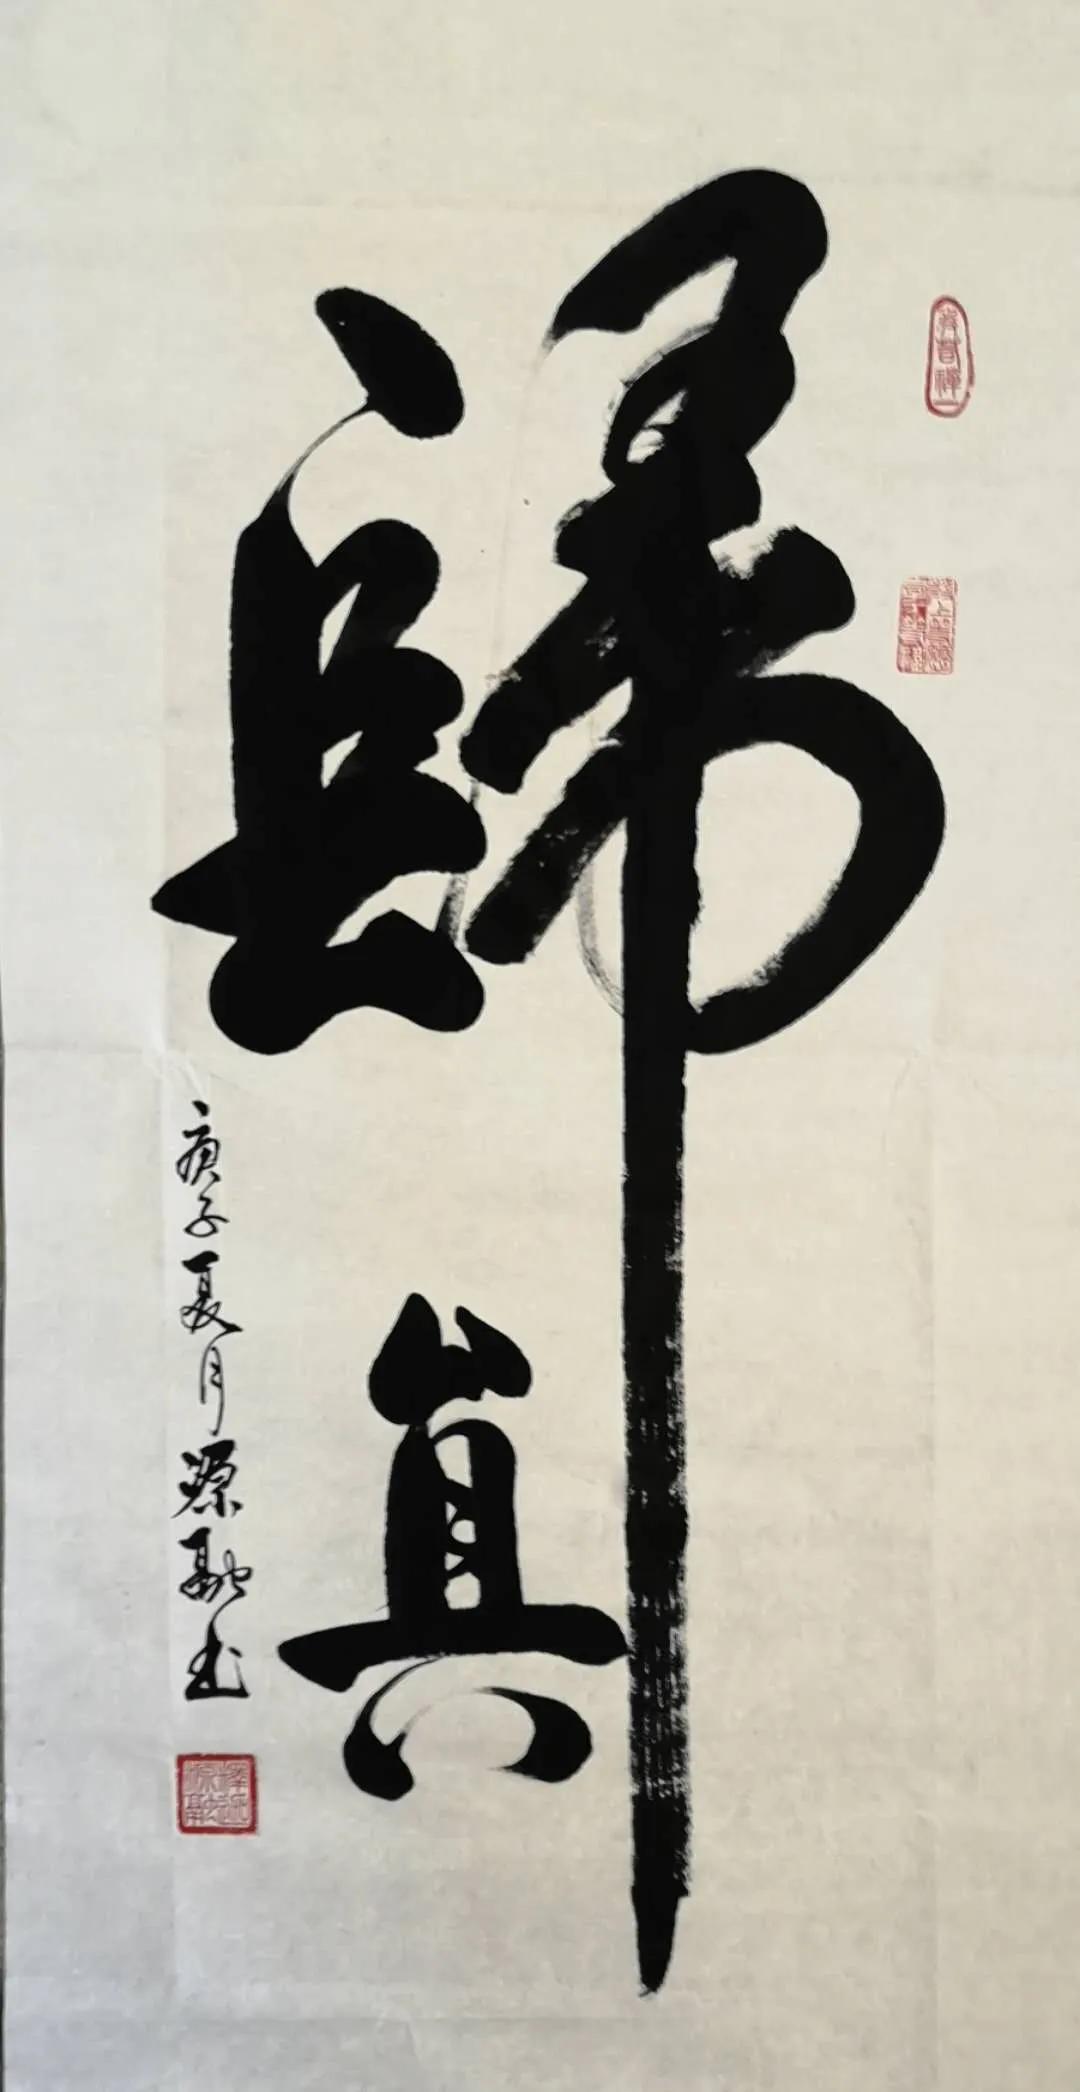 歸真
庚子夏月源融书